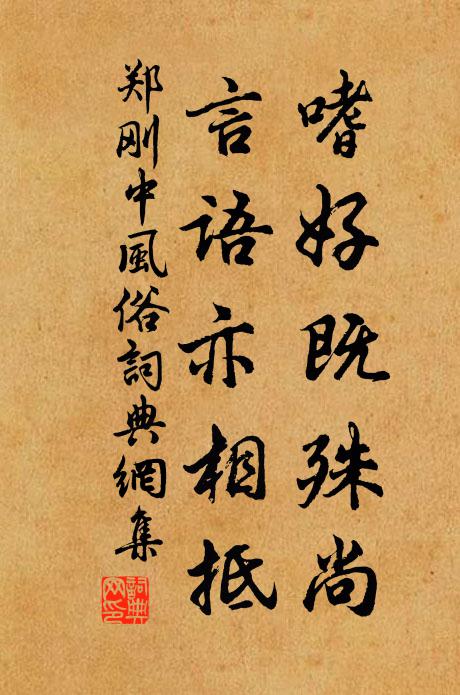 嗜好既殊尚
言语亦相抵
郑刚中風俗詞典網集
詞典
网印